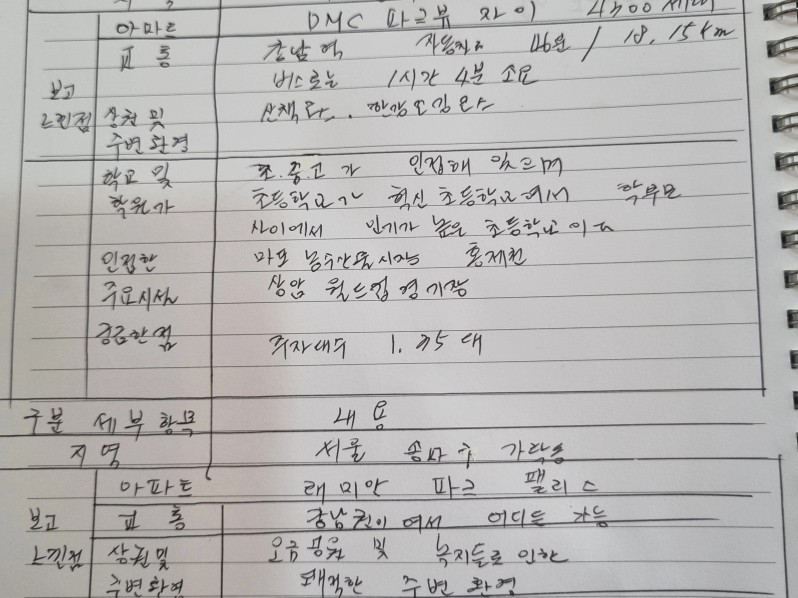 아파트 DMC 파크뷰 자이 4300세대
교통 강남역 자동차로 46분 / 18.15km
버스로는 1시간 4분 소요
보고
느낀점 상권 및 산책로, 한강도 김로
주변환경
학교 및 초.중.고가 인접해 있으며
학원가 초등학교가 혁신 초등학교여서 학부모
사이에서 인기가 높은 초등학교이다
인접한 마포 농수산물시장 홍제천
주요시설 상암 월드컵 경기장
궁금한점 주차대수 1.35대
구분 세부항목 내용
지역 서울 송파구 가락동
아파트 래미안 파크 팰리스
보고 교통 강남권이여서 어디든 가능
느낀점 상권 및 오금공원 및 녹지들로 인한
주변환경 쾌적한 주변 환경